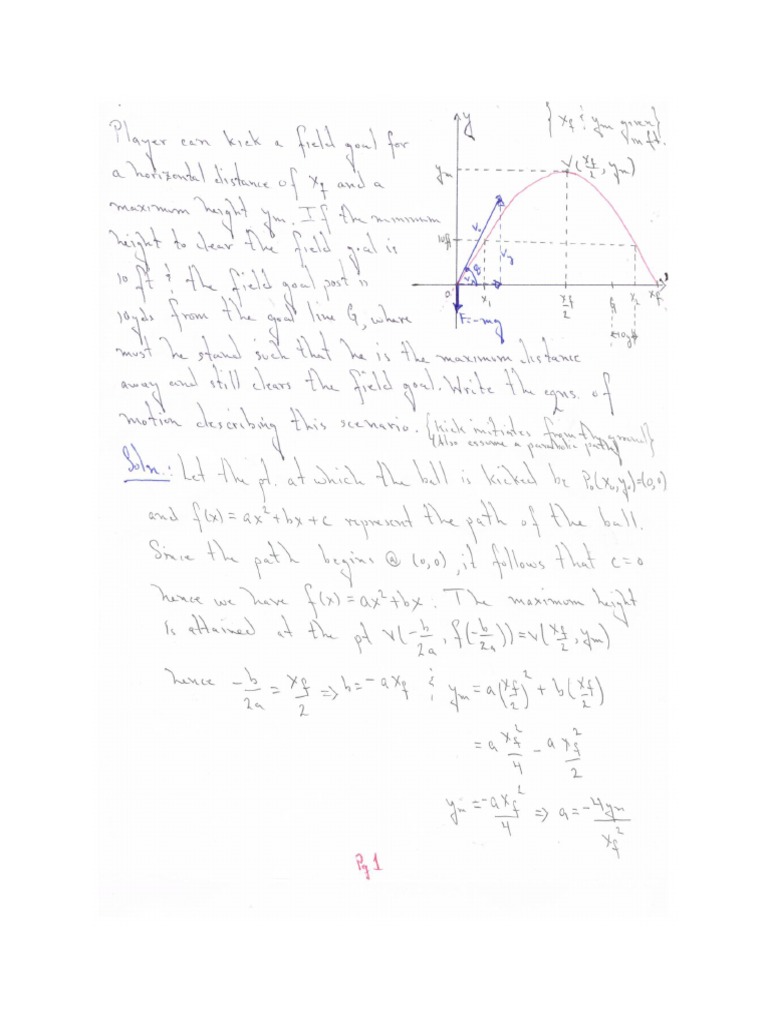 Player can kick a field goal for
a horizontal distance of x_f and a
maximum height y_m. If the minimum
height to clear the field goal is
10 ft & the field goal post is
10 yds from the goal line G, where
must he stand such that he is the maximum distance
away and still clears the field goal. Write the eqns. of
motion describing this scenario. {Kick initiates from the ground}
(Also assume a parabolic path)
y
{x_f & y_m given}
in ft.
V(x_f/2, y_m)
y_m
V_0
10ft
V_y
V_x
θ
0
x_1
x_f/2
G
x_2
x_f
F=-mg
10yd
Soln.: Let the pt. at which the ball is kicked be P_0(x_0,y_0)=(0,0)
and f(x)=ax²+bx+c represent the path of the ball.
Since the path begins @ (0,0), it follows that c=0
hence we have f(x)=ax²+bx. The maximum height
is attained at the pt V(-b/2a, f(-b/2a))=V(x_f/2, y_m)
hence -b/2a = x_f/2 ⇒ b=-ax_f & y_m = a(x_f/2)² + b(x_f/2)
= a x_f²/4 - a x_f²/2
y_m = -ax_f²/4 ⇒ a = -4y_m/x_f²
Pg 1